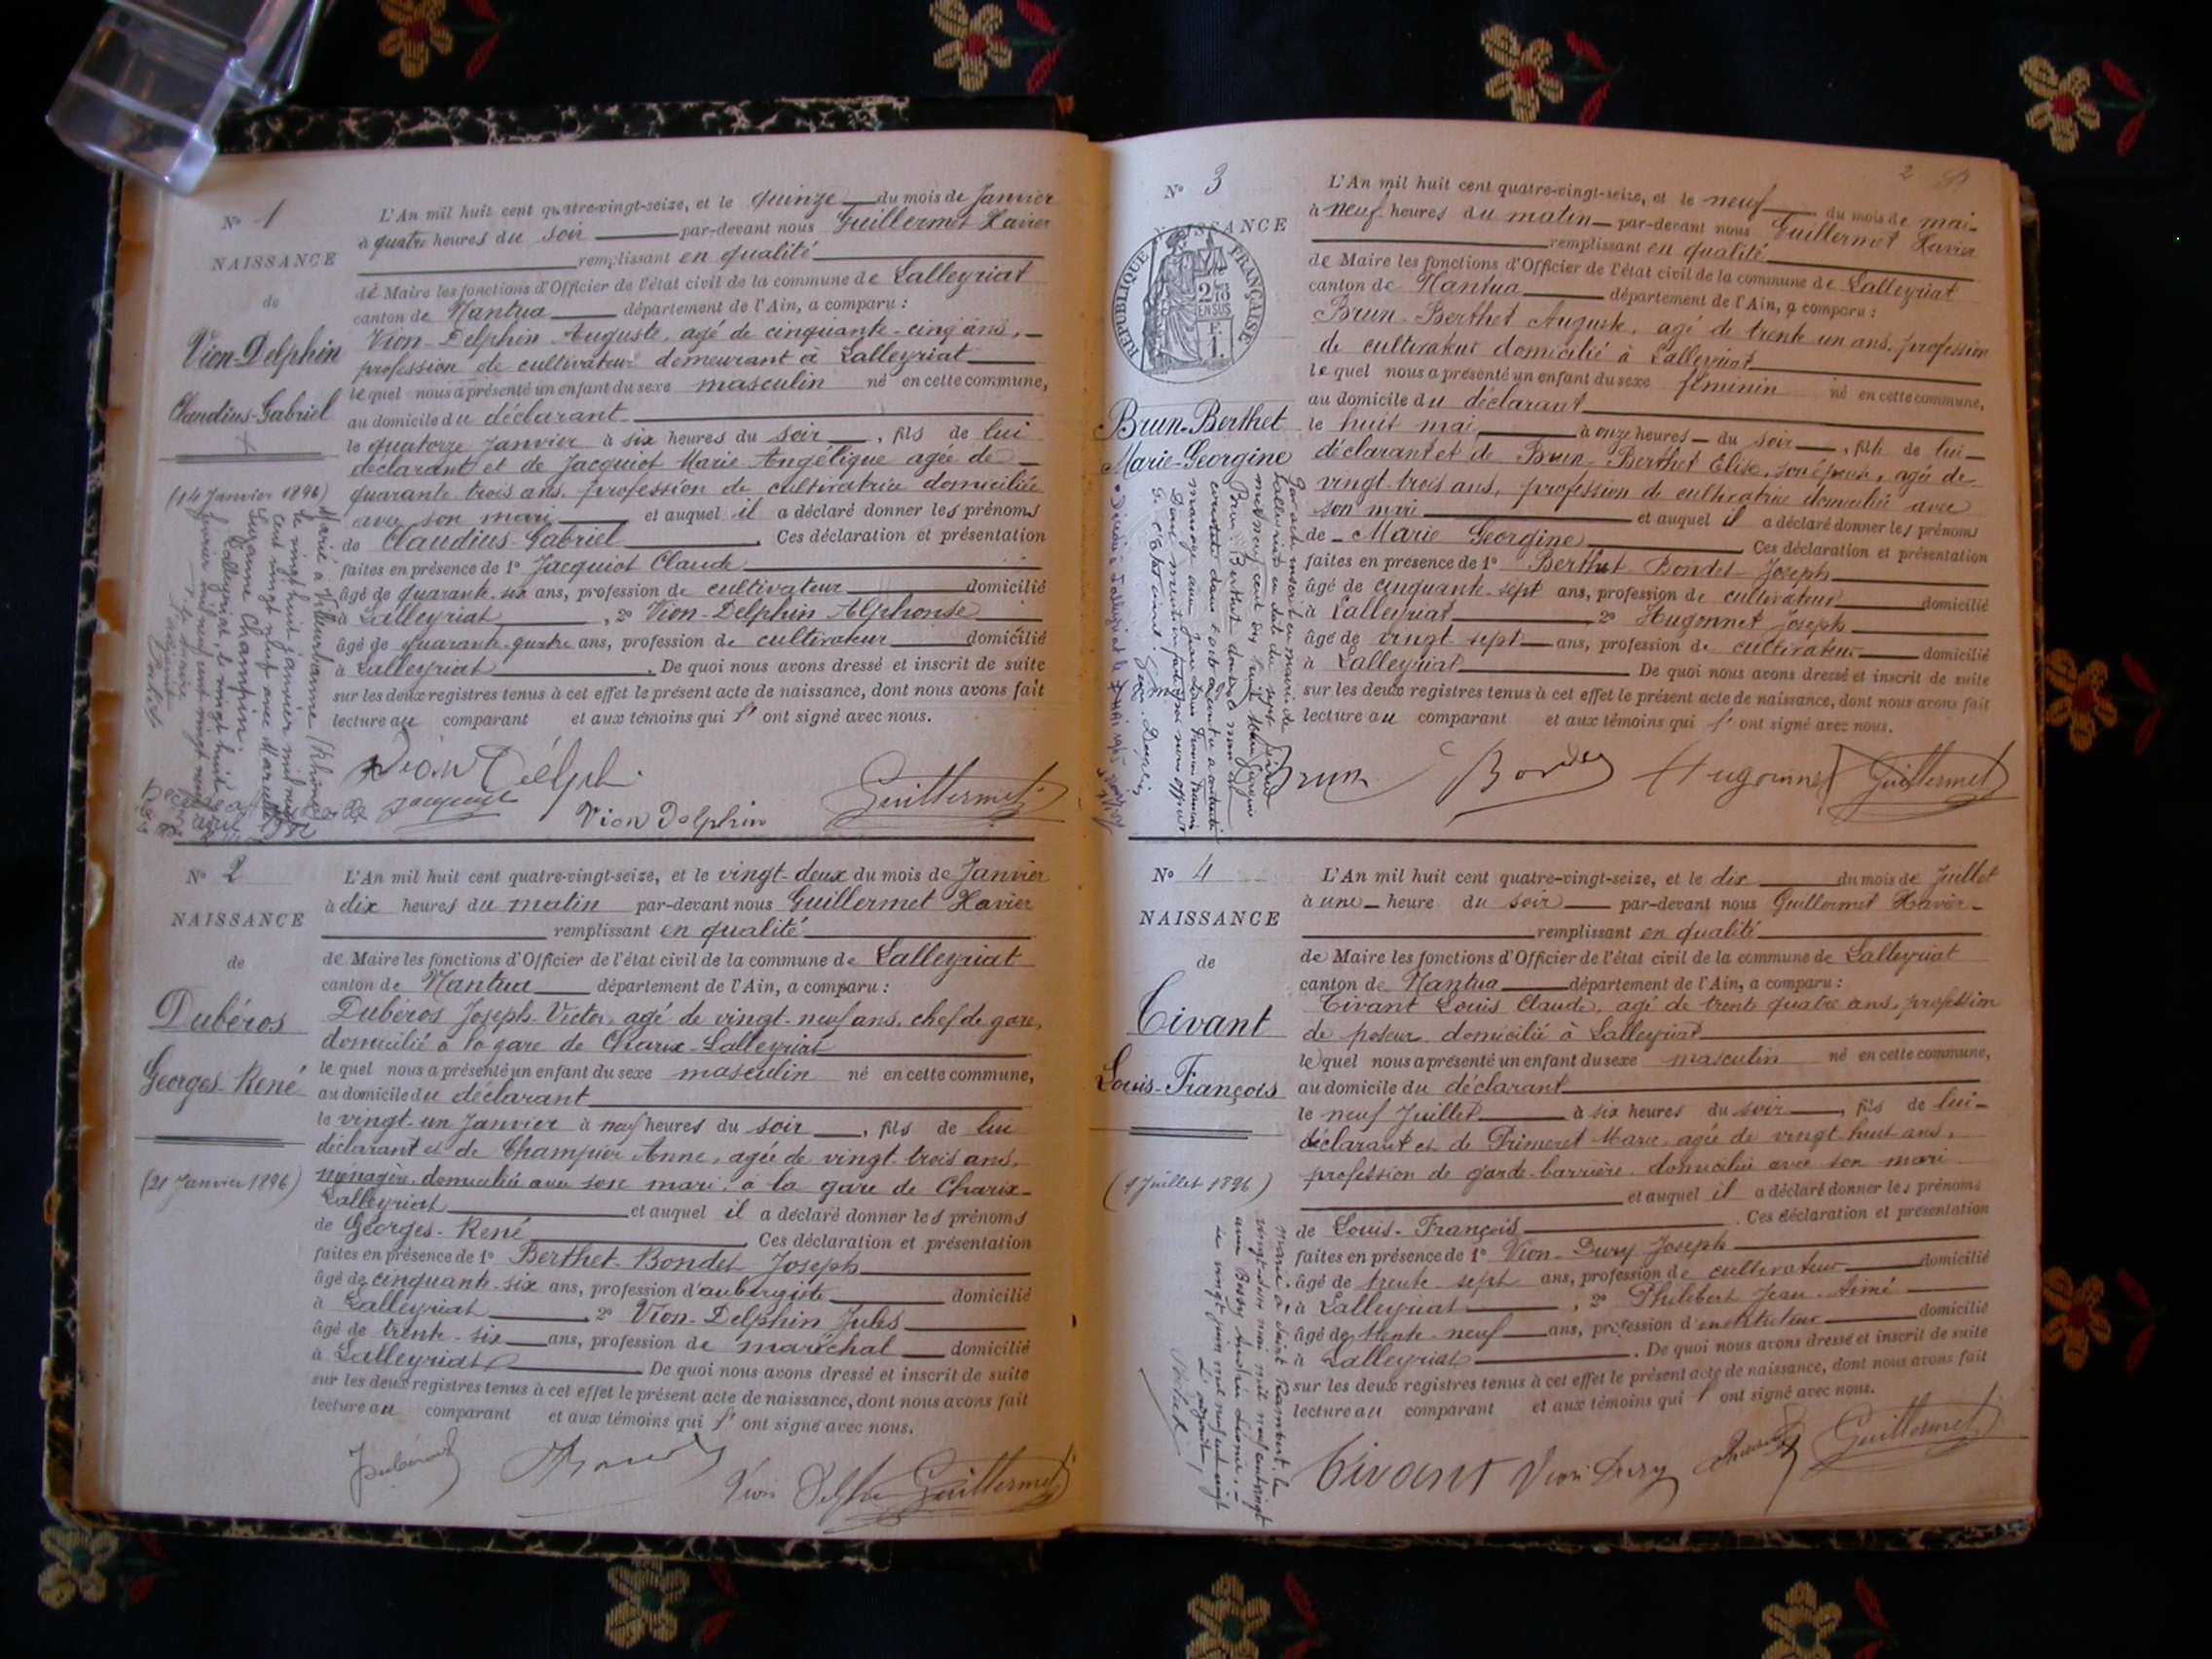 N° 1
NAISSANCE
de
Vion-Delphin
Claudius-Gabriel
(14 Janvier 1896)
Marié à Villeurbanne (Rhône)
le vingt huit janvier mil neuf
cent vingt neuf avec Marcelle
Suzanne Champin.
Lalleyriat, le vingt huit
février mil neuf cent vingt neuf
L'An mil huit cent quatre-vingt-seize, et le quinze du mois de Janvier
à quatre heures du soir par-devant nous Guillermet Xavier
remplissant en qualité
de Maire les fonctions d'Officier de l'état civil de la commune de Lalleyriat
canton de Nantua département de l'Ain, a comparu :
Vion-Delphin Auguste, agé de cinquante-cinq ans,
profession de cultivateur demeurant à Lalleyriat
lequel nous a présenté un enfant du sexe masculin né en cette commune,
au domicile du déclarant
le quatorze Janvier à six heures du soir, fils de lui
déclarant et de Jacquiot Marie Angélique agée de
quarante trois ans, profession de cultivatrice domiciliée
avec son mari et auquel il a déclaré donner les prénoms
de Claudius-Gabriel. Ces déclaration et présentation
faites en présence de 1° Jacquiot Claude
âgé de quarante-six ans, profession de cultivateur domicilié
à Lalleyriat, 2° Vion-Delphin Alphonse
âgé de quarante-quatre ans, profession de cultivateur domicilié
à Lalleyriat. De quoi nous avons dressé et inscrit de suite
sur les deux registres tenus à cet effet le présent acte de naissance, dont nous avons fait
lecture au comparant et aux témoins qui l' ont signé avec nous.
Vion Delph
Jacquiot
Vion Delphin
Guillermet
N° 2
NAISSANCE
de
Dubéros
Georges-René
(21 Janvier 1896)
L'An mil huit cent quatre-vingt-seize, et le vingt-deux du mois de Janvier
à dix heures du matin par-devant nous Guillermet Xavier
remplissant en qualité
de Maire les fonctions d'Officier de l'état civil de la commune de Lalleyriat
canton de Nantua département de l'Ain, a comparu :
Dubéros Joseph-Victor, agé de vingt-neuf ans, chef de gare,
domicilié à la gare de Charix-Lalleyriat
lequel nous a présenté un enfant du sexe masculin né en cette commune,
au domicile du déclarant
le vingt-un Janvier à neuf heures du soir, fils de lui
déclarant et de Champier Anne, agée de vingt-trois ans,
ménagère, domiciliée avec son mari, à la gare de Charix-
Lalleyriat et auquel il a déclaré donner les prénoms
de Georges-René Ces déclaration et présentation
faites en présence de 1° Berthet-Bondet Joseph
âgé de cinquante-six ans, profession d'aubergiste domicilié
à Lalleyriat, 2° Vion-Delphin Jules
âgé de trente-six ans, profession de maréchal domicilié
à Lalleyriat De quoi nous avons dressé et inscrit de suite
sur les deux registres tenus à cet effet le présent acte de naissance, dont nous avons fait
lecture au comparant et aux témoins qui l' ont signé avec nous.
Dubéros
Vion Delphin
Guillermet
2
N° 3
NAISSANCE
RÉPUBLIQUE FRANÇAISE
2/10 EN SUS
Brun-Berthet
Marie-Georgine
L'An mil huit cent quatre-vingt-seize, et le neuf du mois de mai
à neuf heures du matin par-devant nous Guillermet Xavier
remplissant en qualité
de Maire les fonctions d'Officier de l'état civil de la commune de Lalleyriat
canton de Nantua département de l'Ain, a comparu :
Brun-Berthet Auguste, agé de trente un ans, profession
de cultivateur domicilié à Lalleyriat
lequel nous a présenté un enfant du sexe féminin né en cette commune,
au domicile du déclarant
le huit mai, à onze heures du soir, fille de lui
déclarant et de Brun-Berthet Elise, son épouse, agée de
vingt-trois ans, profession de cultivatrice domiciliée avec
son mari et auquel il a déclaré donner les prénoms
de Marie Georgine Ces déclaration et présentation
faites en présence de 1° Berthet Bondet Joseph
âgé de cinquante-sept ans, profession de cultivateur domicilié
à Lalleyriat 2° Hugonnet Joseph
âgé de vingt-sept ans, profession de cultivateur domicilié
à Lalleyriat De quoi nous avons dressé et inscrit de suite
sur les deux registres tenus à cet effet le présent acte de naissance, dont nous avons fait
lecture au comparant et aux témoins qui l' ont signé avec nous.
Brun
Bondet
Hugonnet
Guillermet
N° 4
NAISSANCE
de
Tivant
Louis-François
(9 Juillet 1896)
Marié à Saint Rambert, le
vingt-deux mai mil neuf cent vingt
L'An mil huit cent quatre-vingt-seize, et le dix du mois de Juillet
à une heure du soir par-devant nous Guillermet Xavier
remplissant en qualité
de Maire les fonctions d'Officier de l'état civil de la commune de Lalleyriat
canton de Nantua département de l'Ain, a comparu :
Tivant Louis Claude, agé de trente quatre ans, profession
de poseur, domicilié à Lalleyriat
lequel nous a présenté un enfant du sexe masculin né en cette commune,
au domicile du déclarant
le neuf Juillet à six heures du soir, fils de lui
déclarant et de Primeret Marie, agée de vingt huit ans,
profession de garde-barrière, domiciliée avec son mari
et auquel il a déclaré donner les prénoms
de Louis-François. Ces déclaration et présentation
faites en présence de 1° Vion-Dury Joseph
âgé de trente-sept ans, profession de cultivateur domicilié
à Lalleyriat, 2° Philibert Jean-Aimé
âgé de trente-neuf ans, profession d'instituteur domicilié
à Lalleyriat. De quoi nous avons dressé et inscrit de suite
sur les deux registres tenus à cet effet le présent acte de naissance, dont nous avons fait
lecture au comparant et aux témoins qui l' ont signé avec nous.
Tivant
Vion Dury
Guillermet